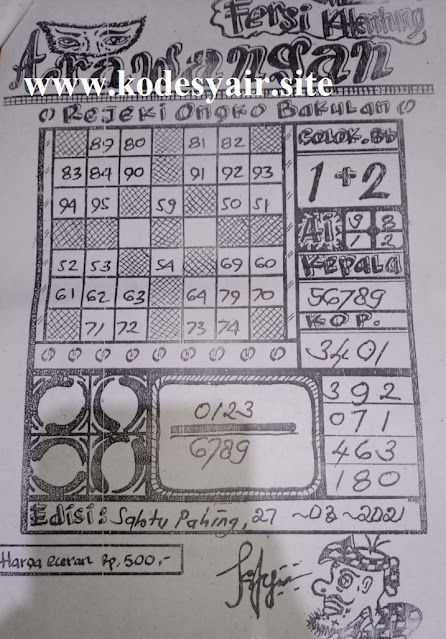 Fersi Klentung
Arawangan
www.kodesyair.site
Rejeki Ongko Bakulan
89 80 81 82
83 84 90 91 92 93
94 95 59 50 51
52 53 54 69 60
61 62 63 64 79 70
71 72 73 74
COLOK. BB
1+2
Ai
9 8
1 2
KEPALA
56789
KOP.
3401
0123
6789
392
071
463
180
Edisi: Sabtu Pahing, 27 ~03~2021
Harga eceran Rp, 500,-